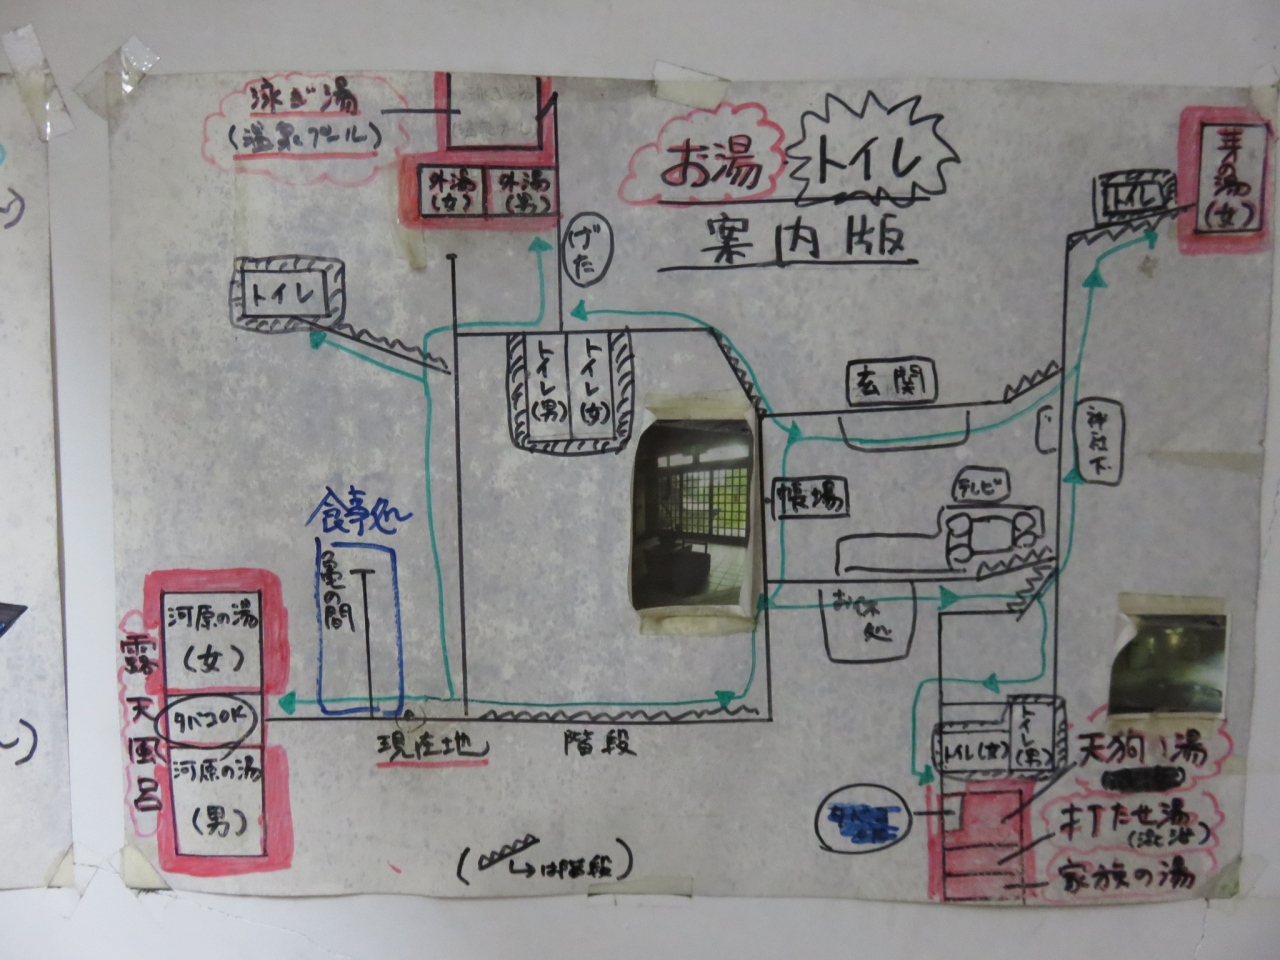 泳ぎ湯
(温泉プール)
外湯
(女)
外湯
(男)
げた
お湯
トイレ
案内版
トイレ
芽の湯
(女)
トイレ
トイレ
(男)
トイレ
(女)
玄関
神社下
帳場
テレビ
お休
処
食事処
亀の間
露天風呂
河原の湯
(女)
タバコOK
河原の湯
(男)
現在地
階段
トイレ(女)
トイレ
(男)
天狗の湯
打たせ湯
家族の湯
(
は階段)